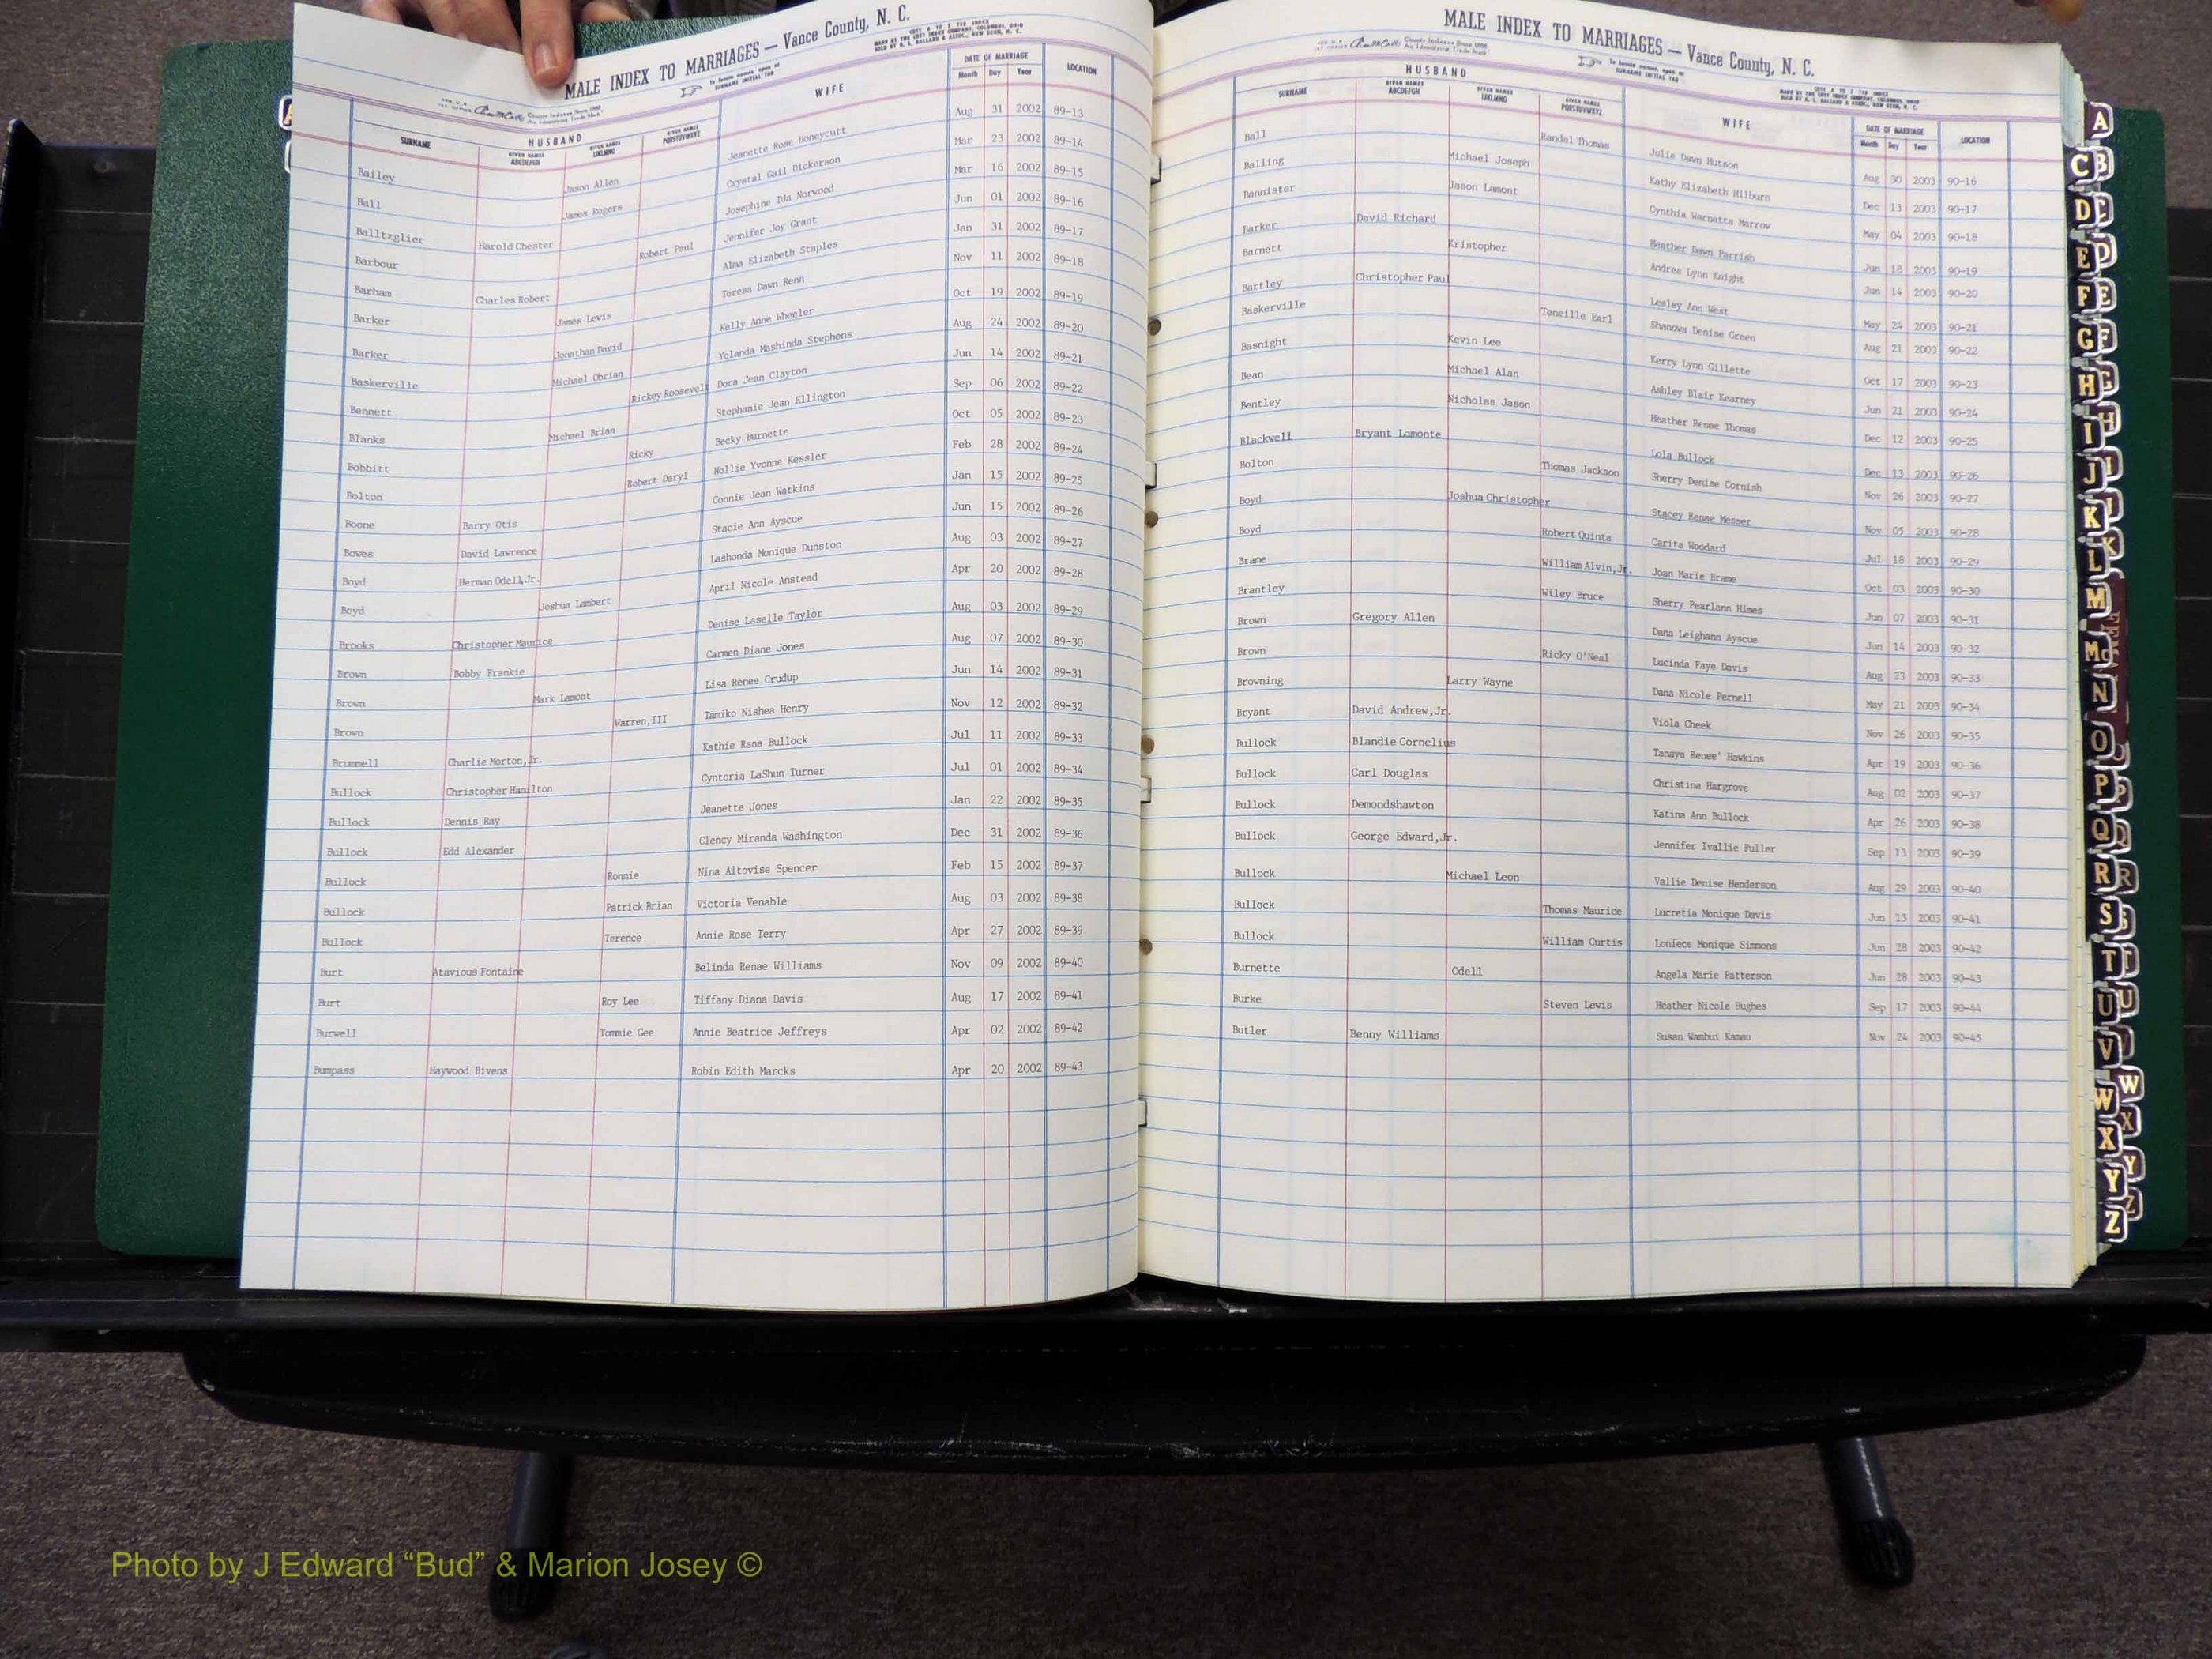 MALE INDEX TO MARRIAGES — Vance County, N. C.
To locate names, open at
SURNAME INITIAL TAB
COTT A TO Z TAB INDEX
MADE BY THE COTT INDEX COMPANY, COLUMBUS, OHIO
SOLD BY A. L. BALLARD & ASSOC., NEW BERN, N. C.
County Indexes Since 1888
An Identifying Trade Mark
HUSBAND WIFE DATE OF MARRIAGE LOCATION
SURNAME GIVEN NAMES ABCDEFGH GIVEN NAMES IJKLMNO GIVEN NAMES PQRSTUVWXYZ Month Day Year
Bailey Jason Allen Jeanette Rose Honeycutt Aug 31 2002 89-13
Ball James Rogers Crystal Gail Dickerson Mar 23 2002 89-14
Balltzglier Harold Chester Josephine Ida Norwood Mar 16 2002 89-15
Barbour Robert Paul Jennifer Joy Grant Jun 01 2002 89-16
Barham Charles Robert Alma Elizabeth Staples Jan 31 2002 89-17
Barker James Lewis Teresa Dawn Renn Nov 11 2002 89-18
Barker Jonathan David Kelly Anne Wheeler Oct 19 2002 89-19
Baskerville Michael Obrian Yolanda Mashinda Stephens Aug 24 2002 89-20
Bennett Rickey Roosevelt Dora Jean Clayton Jun 14 2002 89-21
Blanks Michael Brian Stephanie Jean Ellington Sep 06 2002 89-22
Bobbitt Ricky Becky Burnette Oct 05 2002 89-23
Bolton Robert Daryl Hollie Yvonne Kessler Feb 28 2002 89-24
Boone Barry Otis Connie Jean Watkins Jan 15 2002 89-25
Bowes David Lawrence Stacie Ann Ayscue Jun 15 2002 89-26
Boyd Herman Odell, Jr. Lashonda Monique Dunston Aug 03 2002 89-27
Boyd Joshua Lambert April Nicole Anstead Apr 20 2002 89-28
Brooks Christopher Maurice Denise Laselle Taylor Aug 03 2002 89-29
Brown Bobby Frankie Carmen Diane Jones Aug 07 2002 89-30
Brown Mark Lamont Lisa Renee Crudup Jun 14 2002 89-31
Brown Warren, III Tamiko Nishea Henry Nov 12 2002 89-32
Brummell Charlie Morton, Jr. Kathie Rana Bullock Jul 11 2002 89-33
Bullock Christopher Hamilton Cyntoria LaShun Turner Jul 01 2002 89-34
Bullock Dennis Ray Jeanette Jones Jan 22 2002 89-35
Bullock Edd Alexander Clency Miranda Washington Dec 31 2002 89-36
Bullock Ronnie Nina Altovise Spencer Feb 15 2002 89-37
Bullock Patrick Brian Victoria Venable Aug 03 2002 89-38
Bullock Terence Annie Rose Terry Apr 27 2002 89-39
Burt Atavious Fontaine Belinda Renae Williams Nov 09 2002 89-40
Burt Roy Lee Tiffany Diana Davis Aug 17 2002 89-41
Burwell Tommie Gee Annie Beatrice Jeffreys Apr 02 2002 89-42
Bumpass Haywood Bivens Robin Edith Marcks Apr 20 2002 89-43
MALE INDEX TO MARRIAGES — Vance County, N. C.
County Indexes Since 1888
An Identifying Trade Mark
To locate names, open at
SURNAME INITIAL TAB
COTT A TO Z TAB INDEX
MADE BY THE COTT INDEX COMPANY, COLUMBUS, OHIO
SOLD BY A. L. BALLARD & ASSOC., NEW BERN, N. C.
HUSBAND WIFE DATE OF MARRIAGE LOCATION
SURNAME GIVEN NAMES ABCDEFGH GIVEN NAMES IJKLMNO GIVEN NAMES PQRSTUVWXYZ Month Day Year
Ball Randal Thomas Julie Dawn Hutson Aug 30 2003 90-16
Balling Michael Joseph Kathy Elizabeth Hilburn Dec 13 2003 90-17
Bannister Jason Lamont Cynthia Warnatta Marrow May 04 2003 90-18
Barker David Richard Heather Dawn Parrish Jun 18 2003 90-19
Barnett Kristopher Andrea Lynn Knight Jun 14 2003 90-20
Bartley Christopher Paul Lesley Ann West May 24 2003 90-21
Baskerville Teneille Earl Shanowa Denise Green Aug 21 2003 90-22
Basnight Kevin Lee Kerry Lynn Gillette Oct 17 2003 90-23
Bean Michael Alan Ashley Blair Kearney Jun 21 2003 90-24
Bentley Nicholas Jason Heather Renee Thomas Dec 12 2003 90-25
Blackwell Bryant Lamonte Lola Bullock Dec 13 2003 90-26
Bolton Thomas Jackson Sherry Denise Cornish Nov 26 2003 90-27
Boyd Joshua Christopher Stacey Renae Messer Nov 05 2003 90-28
Boyd Robert Quinta Carita Woodard Jul 18 2003 90-29
Brame William Alvin, Jr. Joan Marie Brame Oct 03 2003 90-30
Brantley Wiley Bruce Sherry Pearlann Himes Jun 07 2003 90-31
Brown Gregory Allen Dana Leighann Ayscue Jun 14 2003 90-32
Brown Ricky O'Neal Lucinda Faye Davis Aug 23 2003 90-33
Browning Larry Wayne Dana Nicole Pernell May 21 2003 90-34
Bryant David Andrew, Jr. Viola Cheek Nov 26 2003 90-35
Bullock Blandie Cornelius Tanaya Renee' Hawkins Apr 19 2003 90-36
Bullock Carl Douglas Christina Hargrove Aug 02 2003 90-37
Bullock Demondshawton Katina Ann Bullock Apr 26 2003 90-38
Bullock George Edward, Jr. Jennifer Ivallie Puller Sep 13 2003 90-39
Bullock Michael Leon Vallie Denise Henderson Aug 29 2003 90-40
Bullock Thomas Maurice Lucretia Monique Davis Jun 13 2003 90-41
Bullock William Curtis Loniece Monique Simmons Jun 28 2003 90-42
Burnette Odell Angela Marie Patterson Jun 28 2003 90-43
Burke Steven Lewis Heather Nicole Hughes Sep 17 2003 90-44
Butler Benny Williams Susan Wambui Kamau Nov 24 2003 90-45
A
C B
D
E D
F E
G F
H G
I H
J I
K
L K
M
Mc
N
O
P P
Q Q
R R
S S
T
U U
V
W W
X X
Y Y
Z Z
Photo by J Edward “Bud” & Marion Josey ©